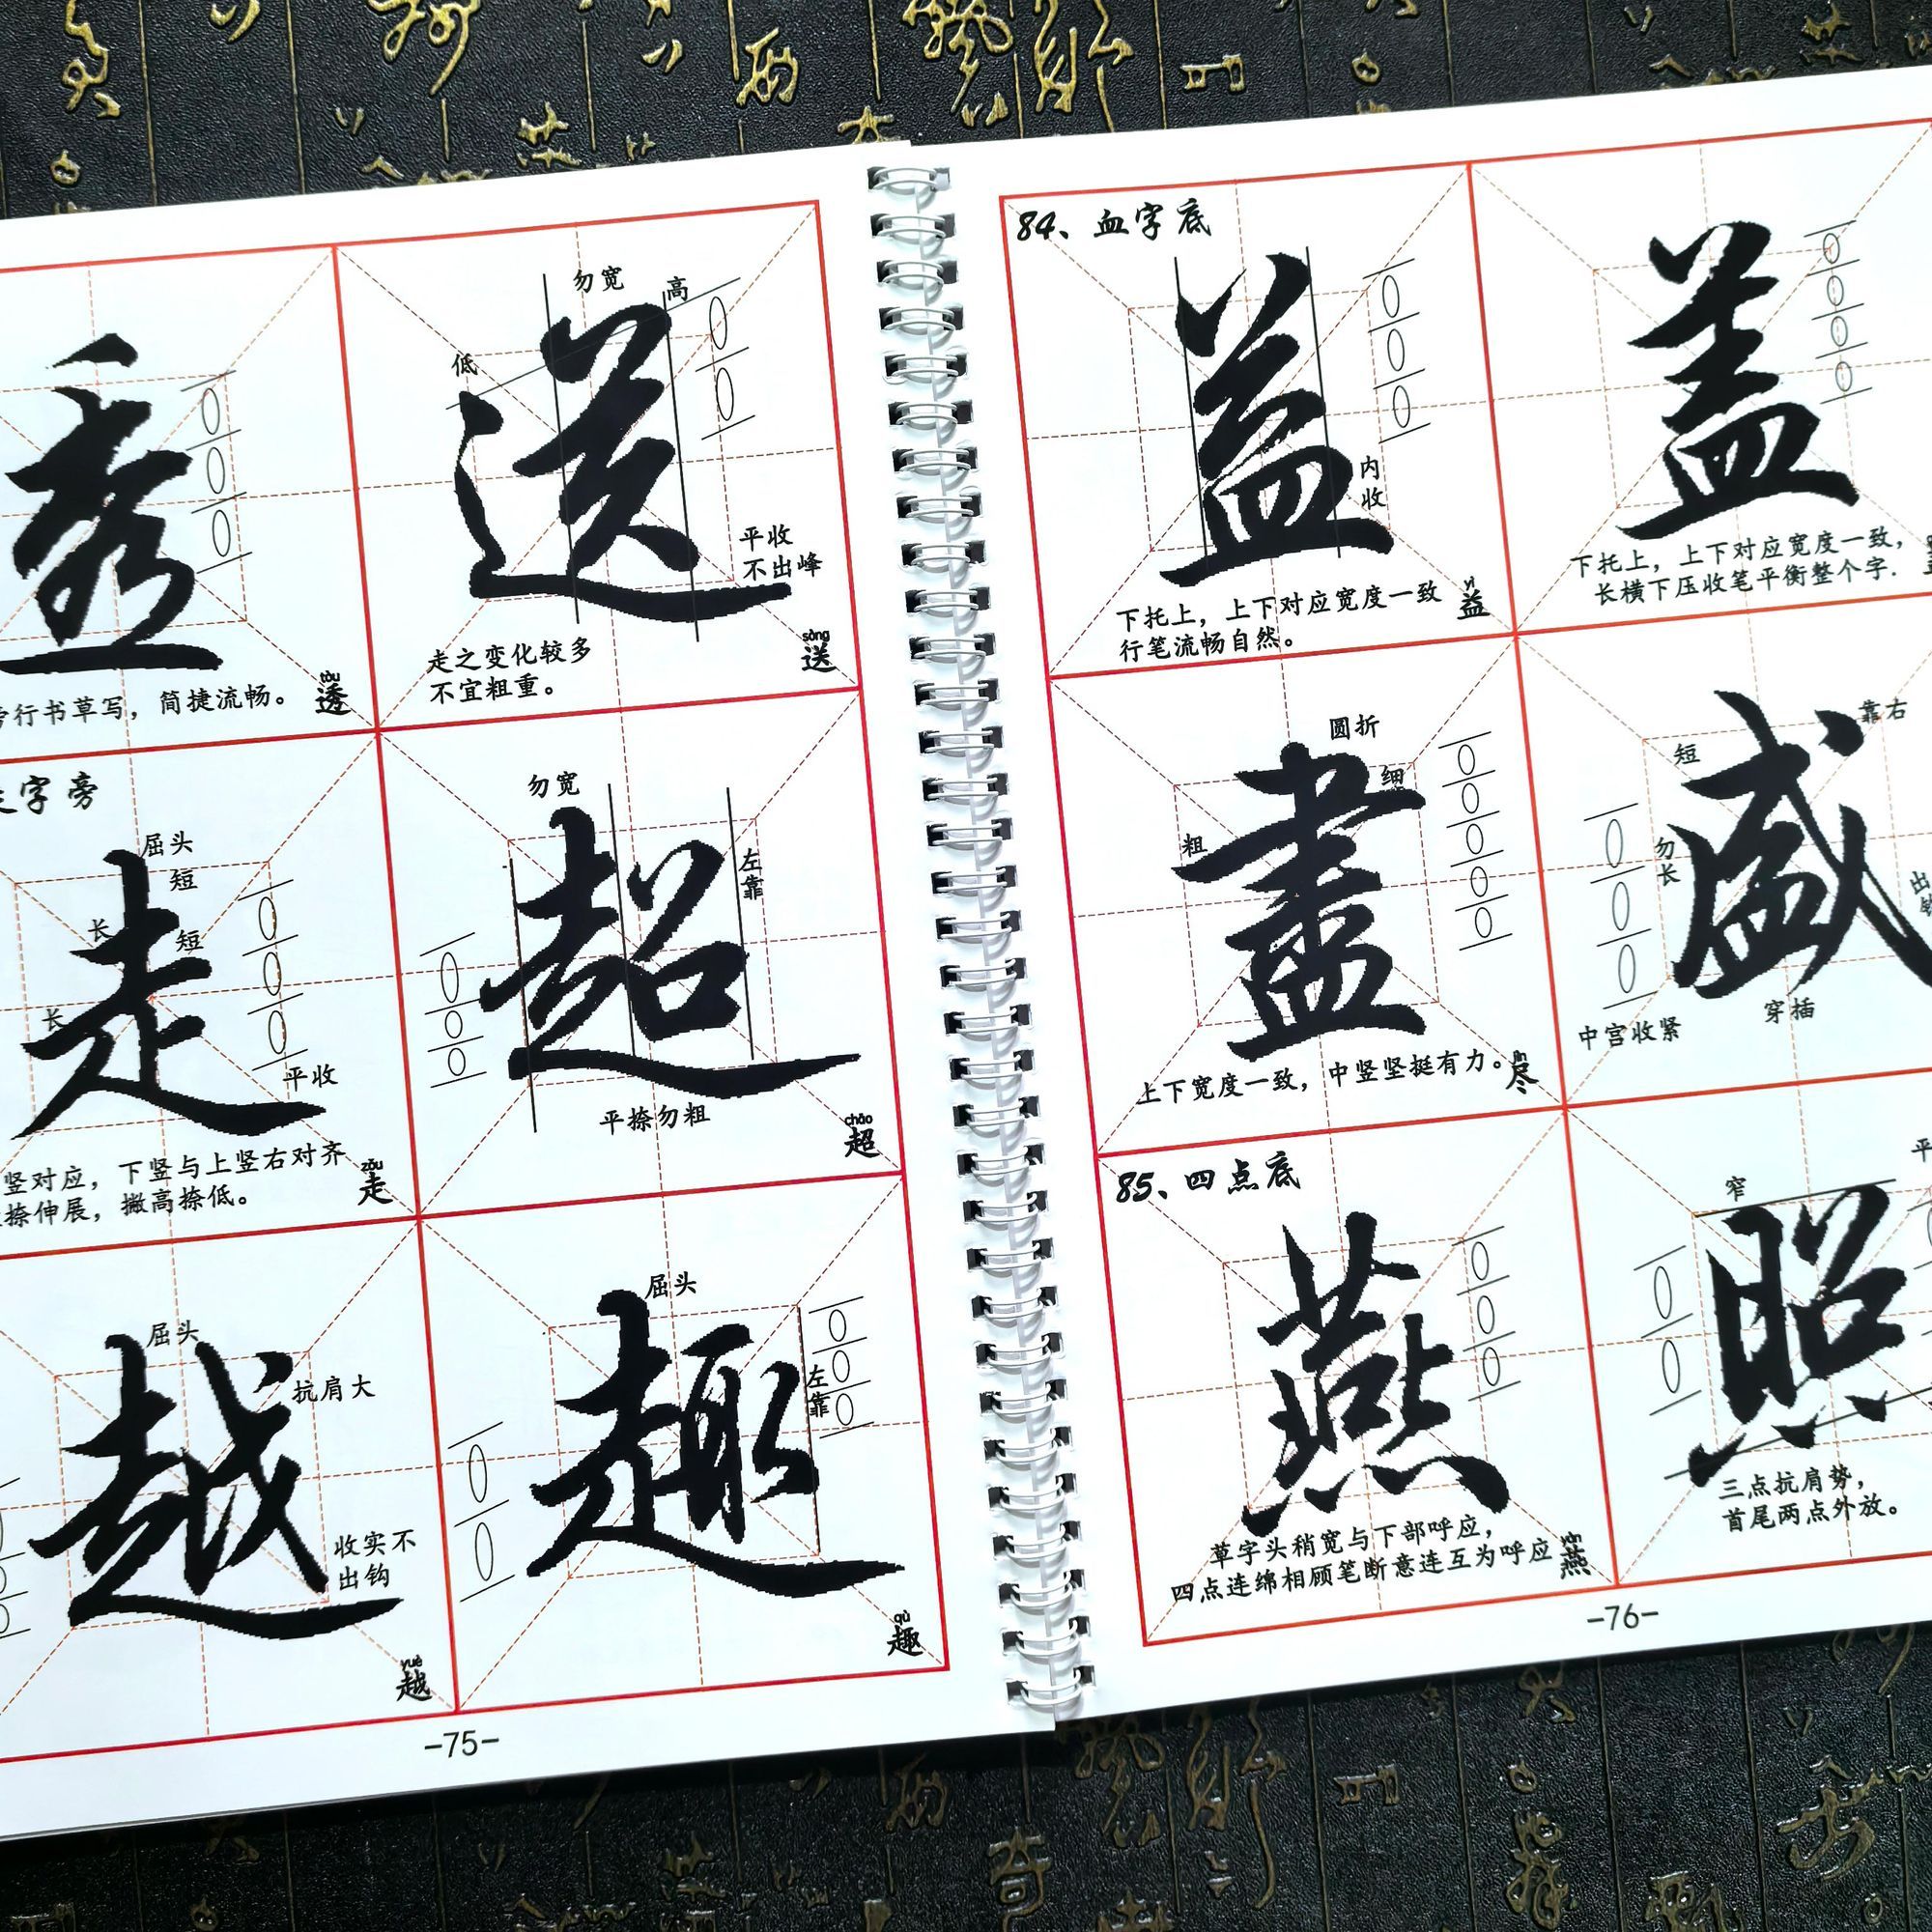 透
行书草写，简捷流畅。
tòu
透
勿宽
高
低
送
平收
不出峰
走之变化较多
不宜粗重。
sòng
送
字旁
屈头
短
长
短
长
走
平收
竖对应，下竖与上竖右对齐
捺伸展，撇高捺低。
zǒu
走
勿宽
左靠
超
平捺勿粗
chāo
超
屈头
抗肩大
越
收实不
出钩
yuè
越
屈头
左靠
趣
qù
趣
-75-
84、皿字底
益
内收
下托上，上下对应宽度一致
行笔流畅自然。
yì
益
盖
下托上，上下对应宽度一致，
长横下压收笔平衡整个字.
圆折
细
粗
盡
上下宽度一致，中竖坚挺有力。
尽
靠右
短
勿长
盛
出
穿插
中宫收紧
85、四点底
燕
草字头稍宽与下部呼应，
四点连绵相顾笔断意连互为呼应
燕
窄
平
照
三点抗肩势，
首尾两点外放。
-76-